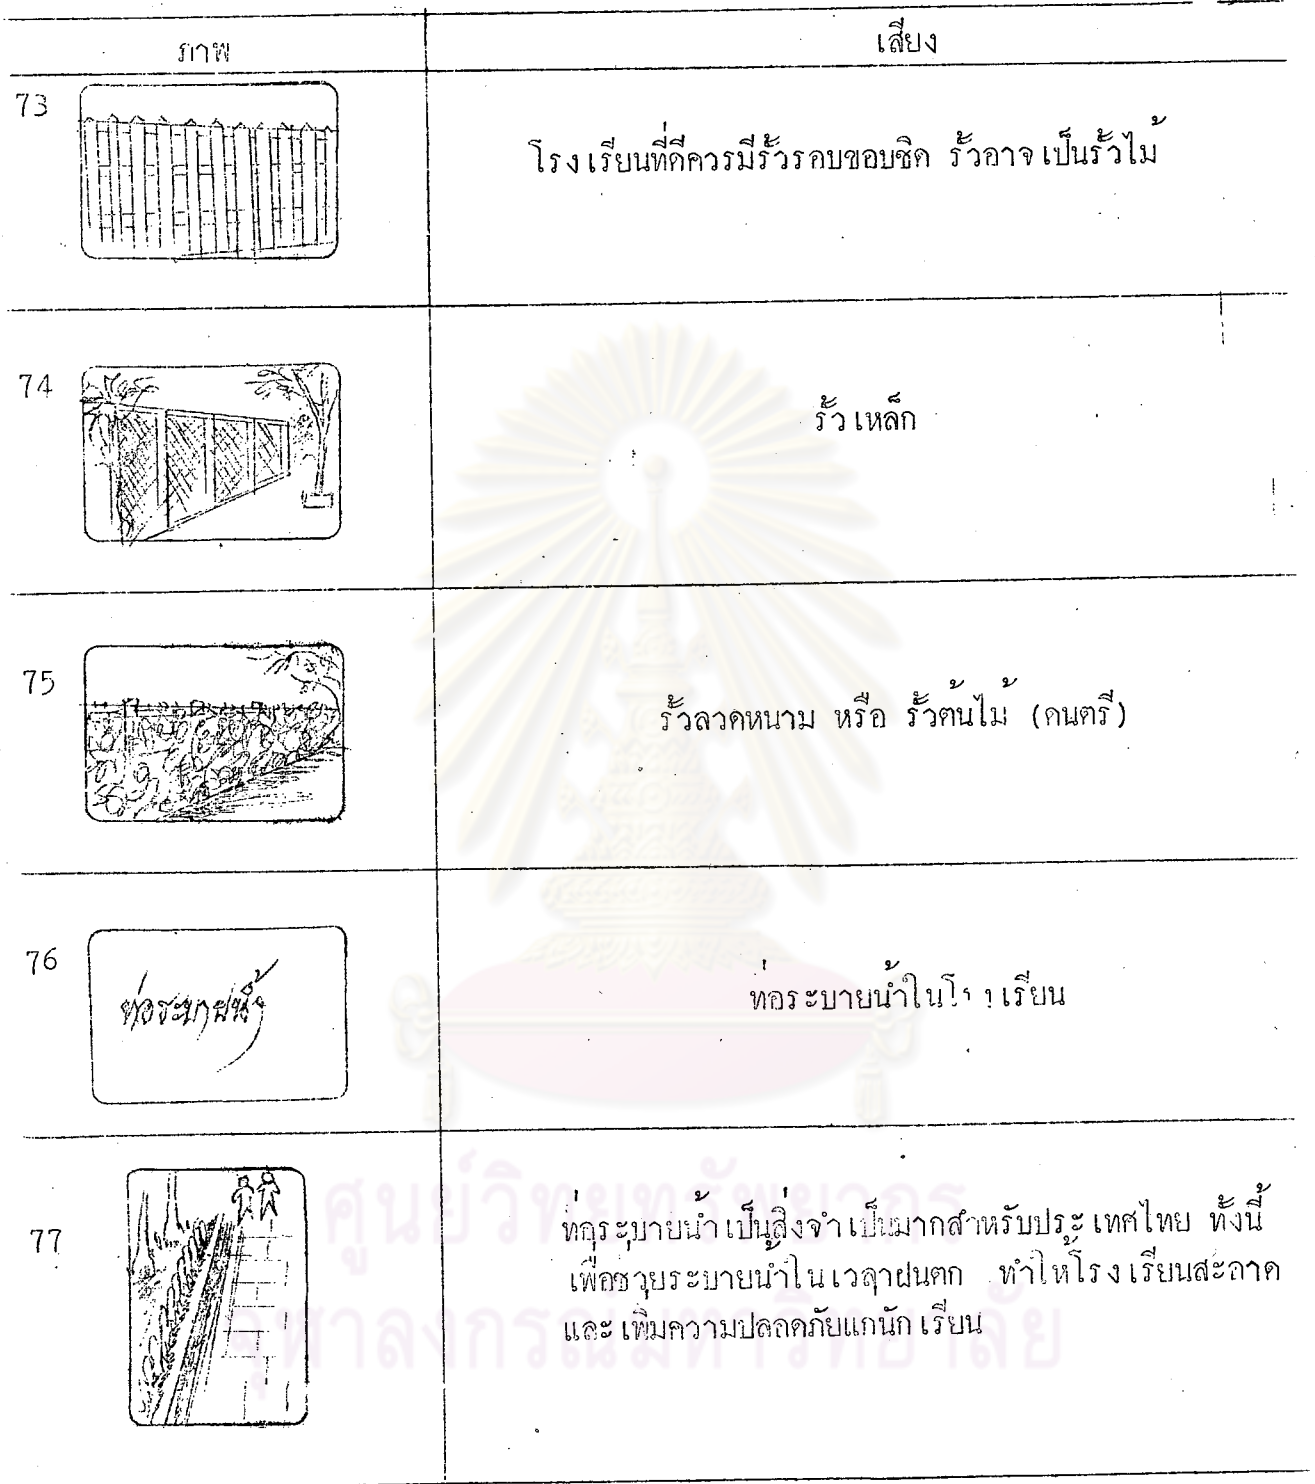 ภาพ
เสียง
73
โรงเรียนที่ดีควรมีรั้วรอบขอบชิด รั้วอาจเป็นรั้วไม้
74
รั้วเหล็ก
75
รั้วลวดหนาม หรือ รั้วต้นไม้ (ดนตรี)
76
ท่อระบายน้ำ
ท่อระบายน้ำในโรงเรียน
77
ท่อระบายน้ำเป็นสิ่งจำเป็นมากสำหรับประเทศไทย ทั้งนี้
เพื่อช่วยระบายน้ำในเวลาฝนตก ทำให้โรงเรียนสะอาด
และเพิ่มความปลอดภัยแก่นักเรียน
ศูนย์วิทยทรัพยากร
จุฬาลงกรณ์มหาวิทยาลัย